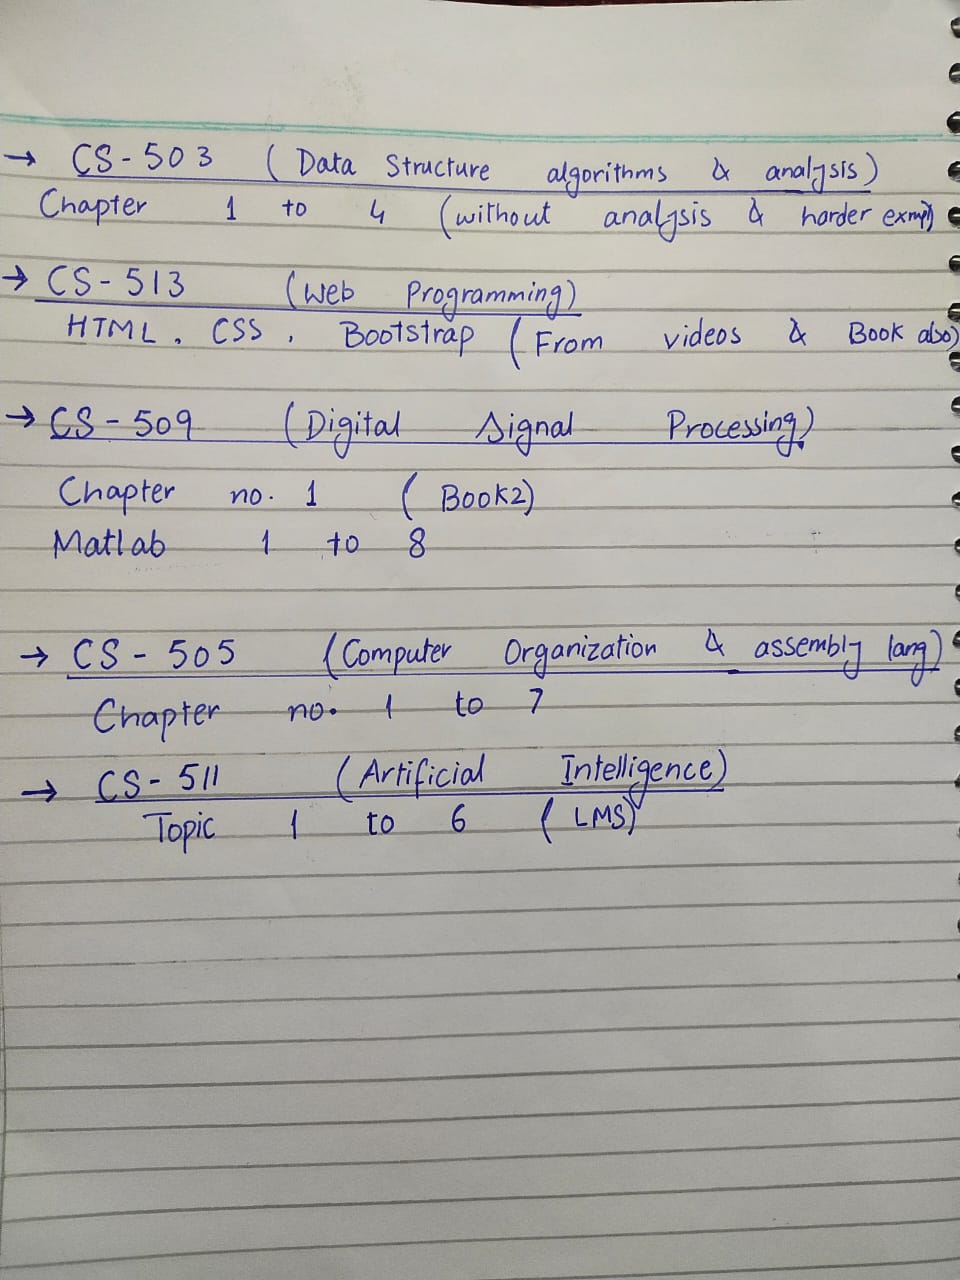 → CS-503 (Data Structure algorithms & analysis)
Chapter 1 to 4 (without analysis & harder exmp)
→ CS-513 (Web Programming)
HTML, CSS, Bootstrap (From videos & Book also)
→ CS-509 (Digital Signal Processing)
Chapter no. 1 (Book2)
Matlab 1 to 8
→ CS-505 (Computer Organization & assembly lang)
Chapter no. 1 to 7
→ CS-511 (Artificial Intelligence)
Topic 1 to 6 (LMS)